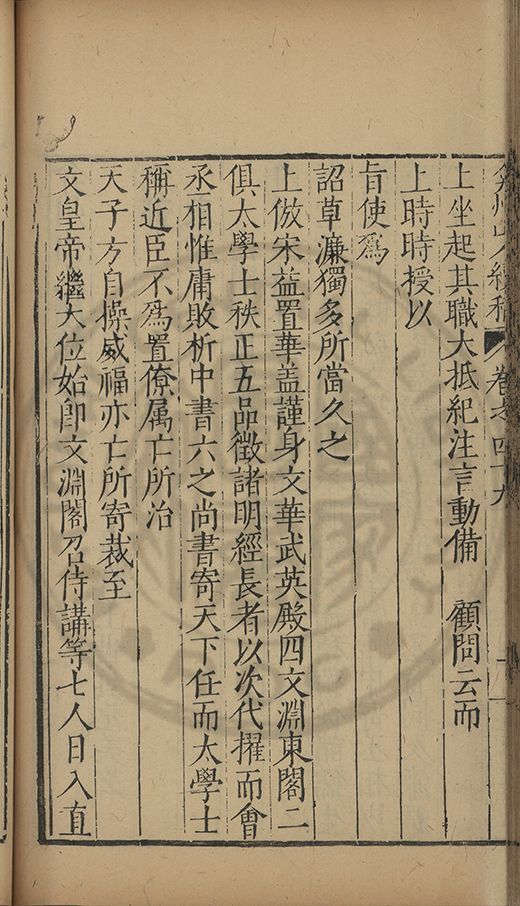 弇州山人續稿 卷之四十九
上坐起其職大抵紀注言動備 顧問云而
上時時授以
旨使爲
詔草濂獨多所當久之
上倣宋益置華盖謹身文華武英殿四文淵東閣二
俱大學士秩正五品徵諸明經長者以次代擢而會
丞相惟庸敗析中書六之尚書寄天下任而大學士
稱近臣不爲置僚属亡所治
天子方自操威福亦亡所寄裁至
文皇帝繼大位始卽文淵閣召侍講等七人日入直